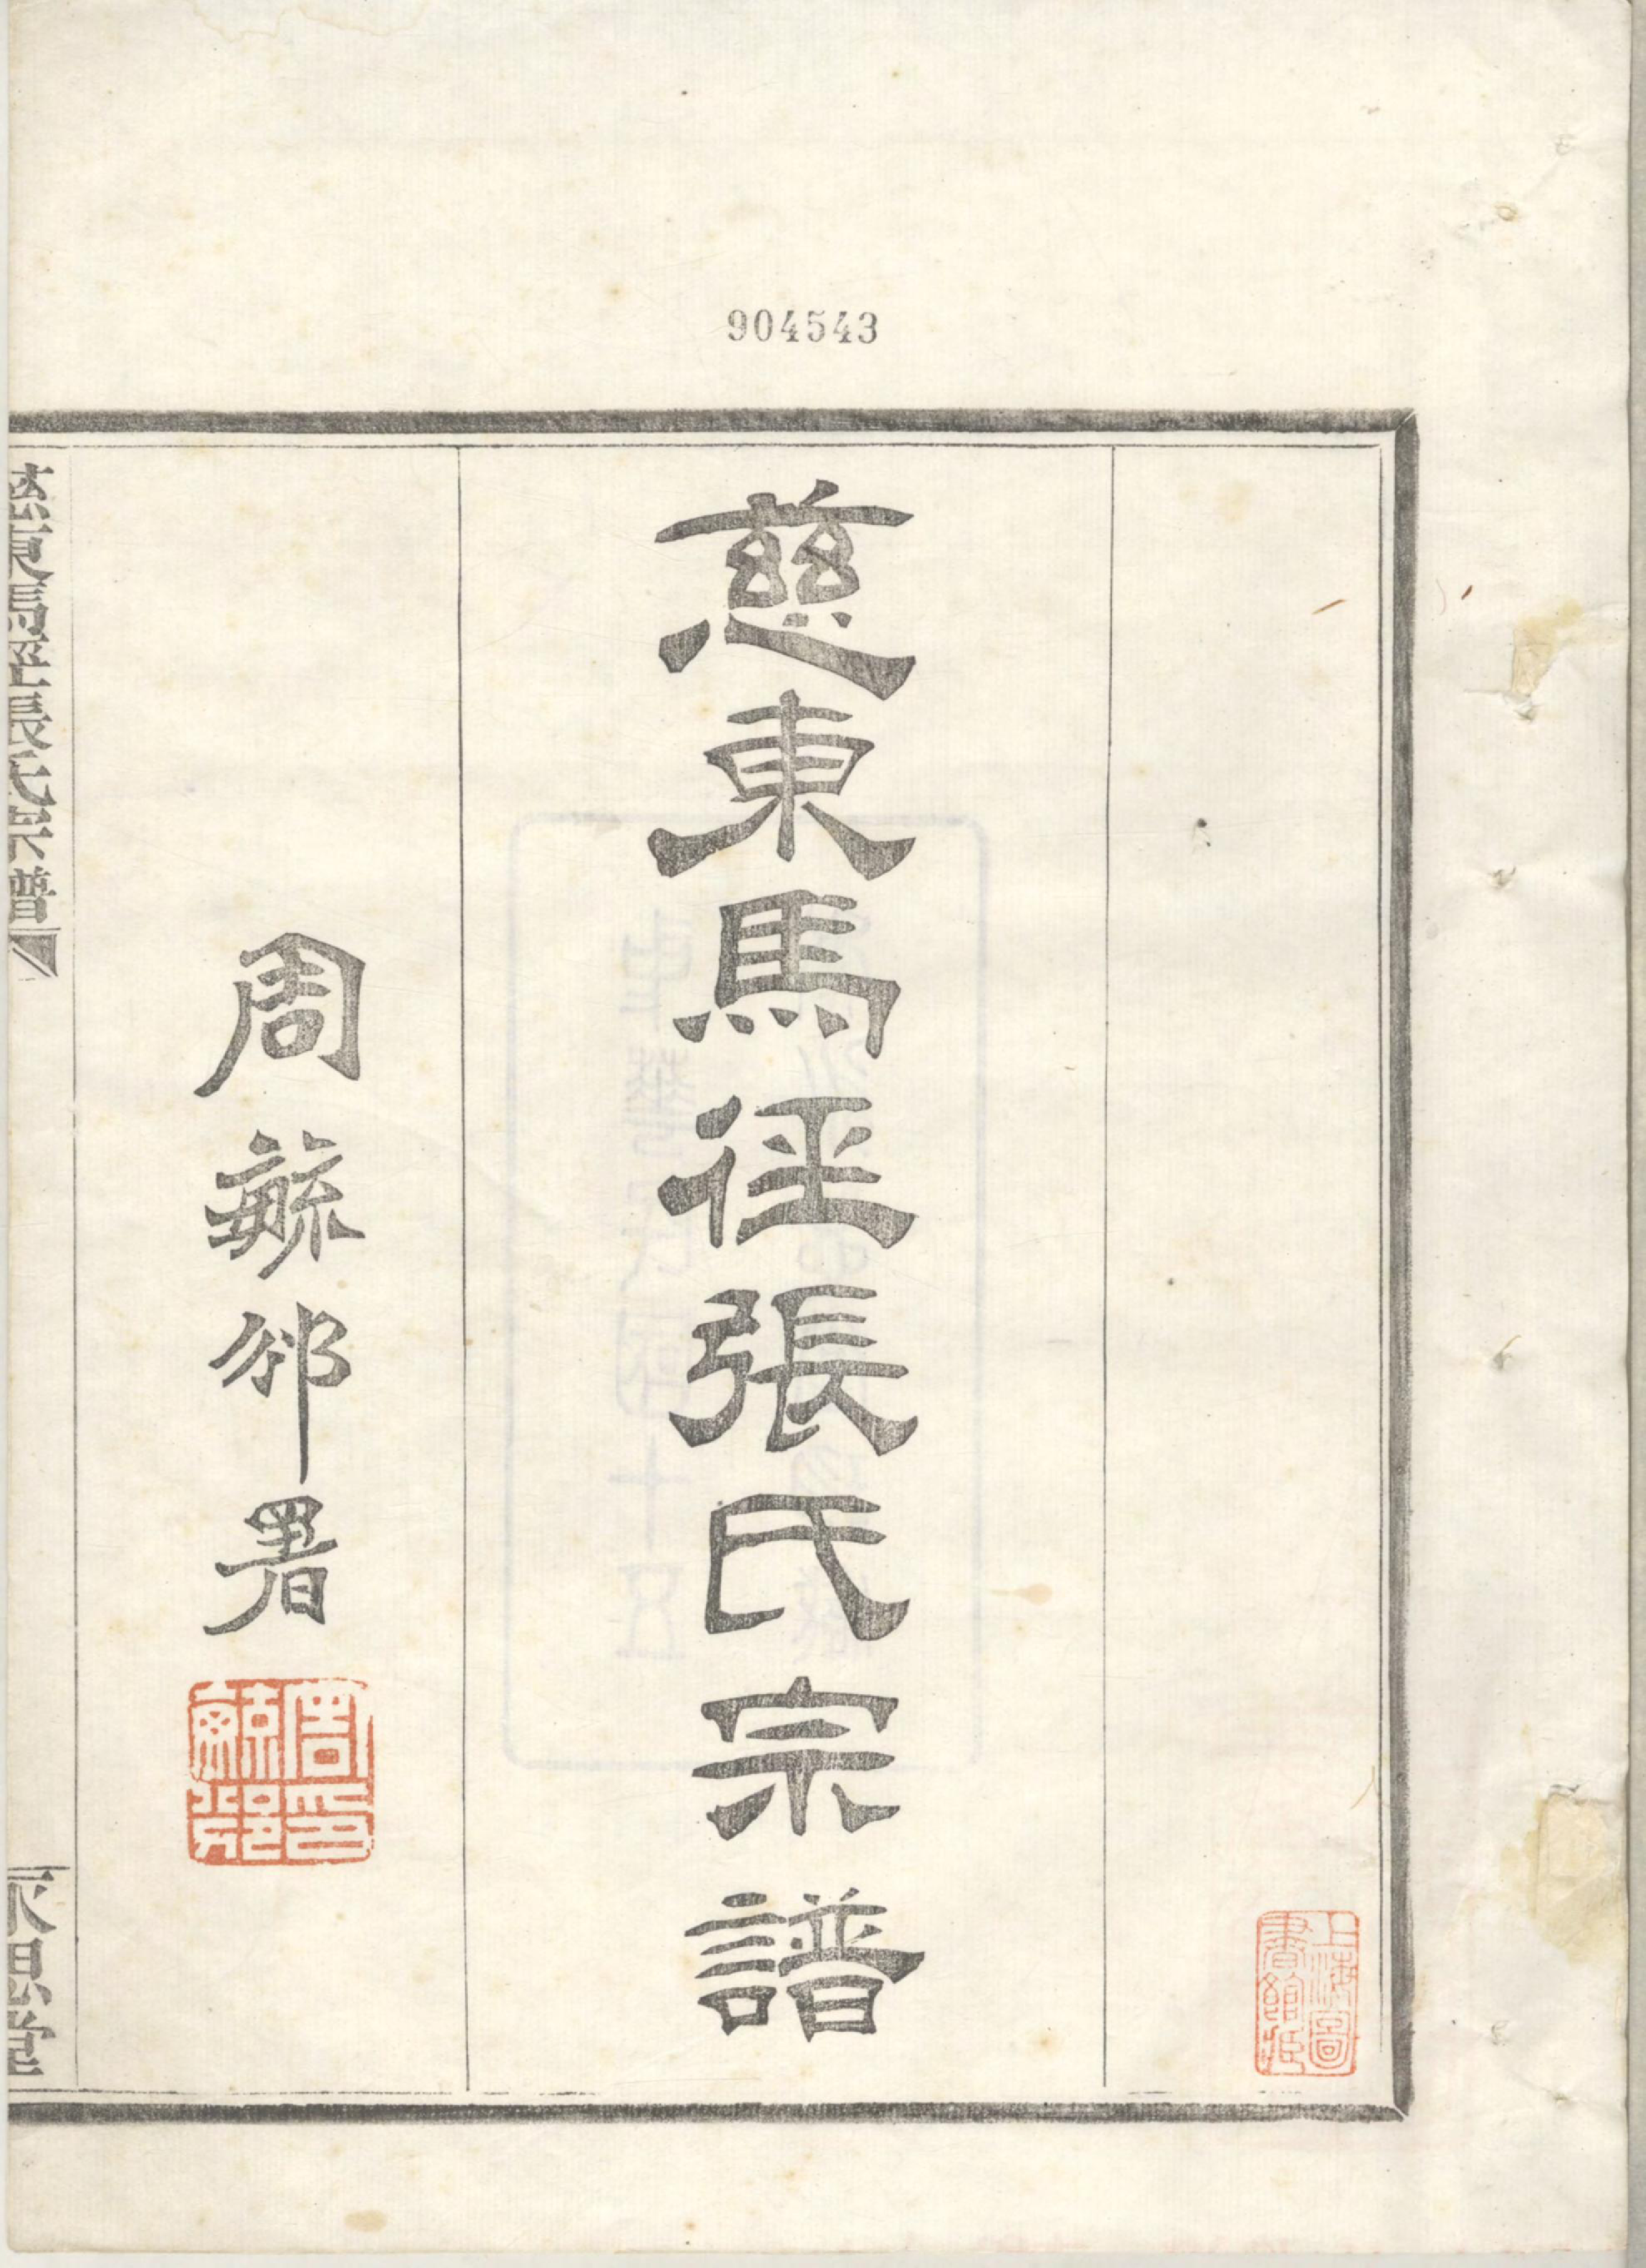 904543
上海圖
書館藏
慈東馬徑張氏宗譜
周毓邠署
周印
毓邠
慈東馬徑張氏宗譜
永思堂